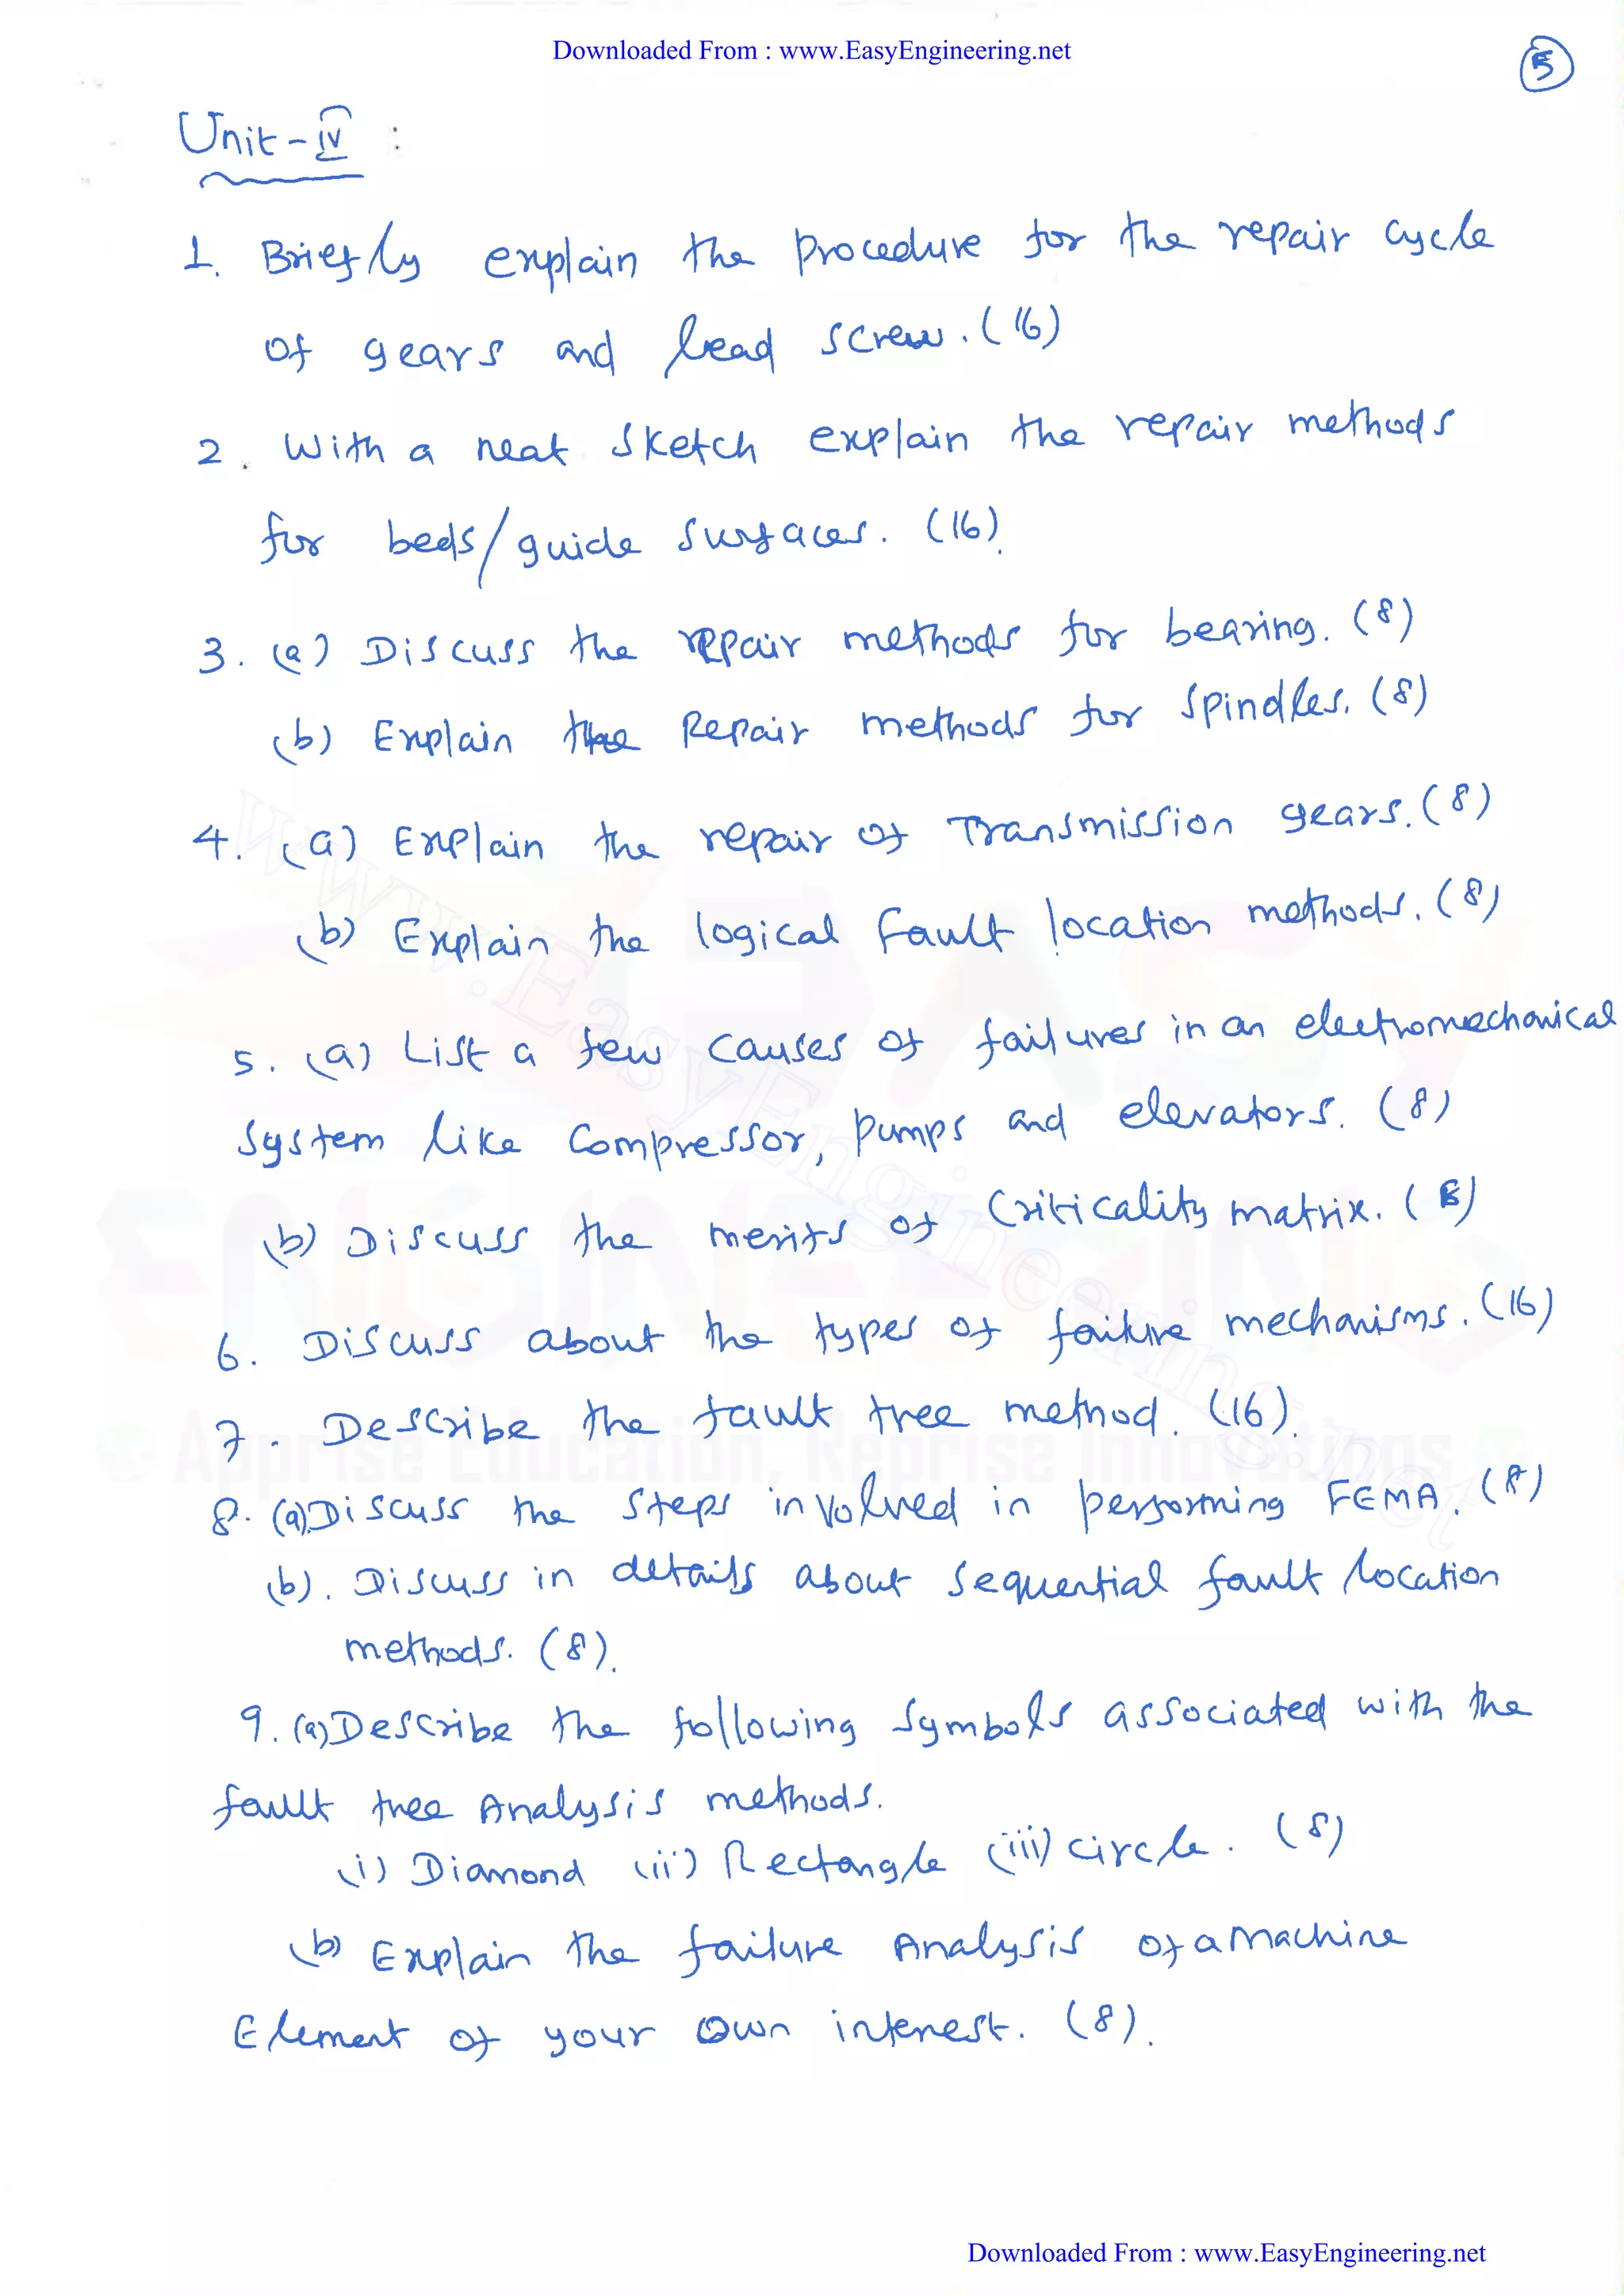 Downloaded From : www.EasyEngineering.net
5
Unit - IV :
1. Briefly explain the procedure for the repair cycle
of gears and lead screw. (16)
2. With a neat sketch explain the repair methods
for beds/guide surfaces. (16).
3. (a) Discuss the repair methods for bearing. (8)
(b) Explain the Repair methods for spindles. (8)
4. (a) Explain the repair of Transmission gears. (8)
(b) Explain the logical Fault location methods. (8)
5. (a) List a few causes of failures in an electromechanical
system like Compressor, pumps and elevators. (8)
(b) Discuss the merits of Criticality matrix. (8)
6. Discuss about the types of failure mechanisms. (16)
7. Describe the fault tree method. (16).
8. (a) Discuss the steps involved in performing FEMA. (8)
(b). Discuss in details about sequential fault location
methods. (8).
9. (a) Describe the following symbols associated with the
fault tree Analysis methods.
(i) Diamond (ii) Rectangle (iii) circle. (8)
(b) Explain the failure Analysis of a machine
Element of your own interest. (8).
www.EasyEngineering.net
EASY
ENGINEERING
Apprise Education, Reprise Innovations
Downloaded From : www.EasyEngineering.net